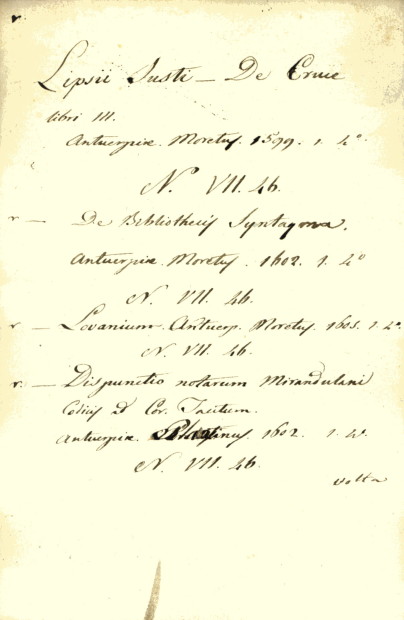 Lipsii Justi — De Cruce
libri III.
Antuerpiæ. Moretus. 1599. 1. 4°.
N. VII. 46.
r — De Bibliothecis Syntagma.
Antuerpiæ. Moretus. 1602. 1. 4°
N. VII. 46.
r — Lovanium. Antuerp. Moretus. 1605. 1. 4°.
N. VII. 46.
r. — Dispunctio notarum Mirandulani
Codicis ad Cor. Tacitum.
Antuerpiæ. Plantinus. 1602. 1. 4°.
N. VII. 46.
volta